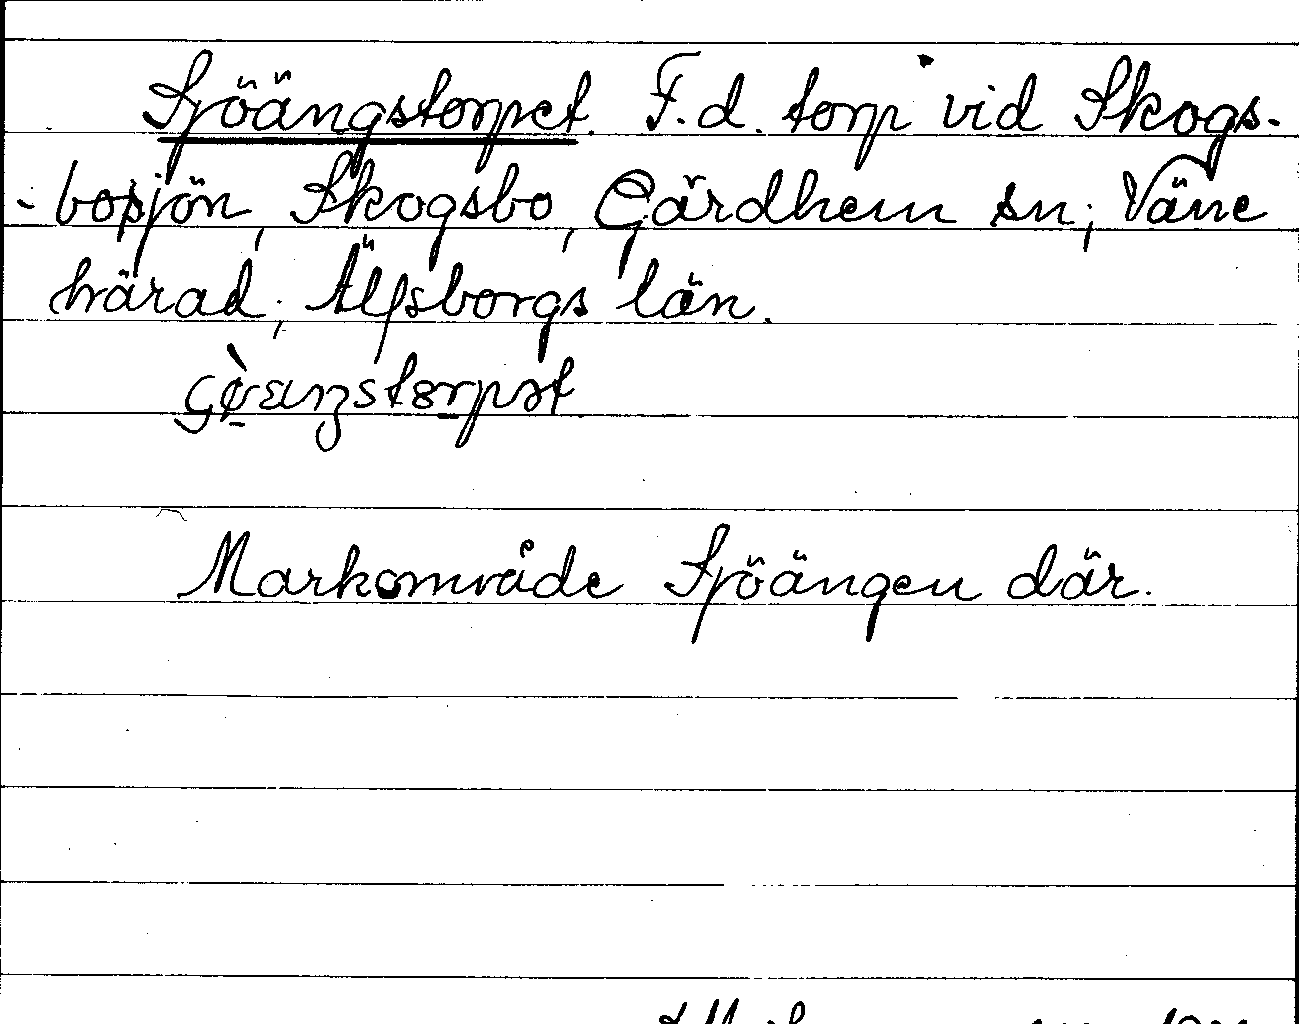 Sjöängstorpet. F.d. torp vid Skogs-
-bosjön, Skogsbo, Gärdhem sn; Väne
härad; Älfsborgs län.
Markområde Sjöängen där.